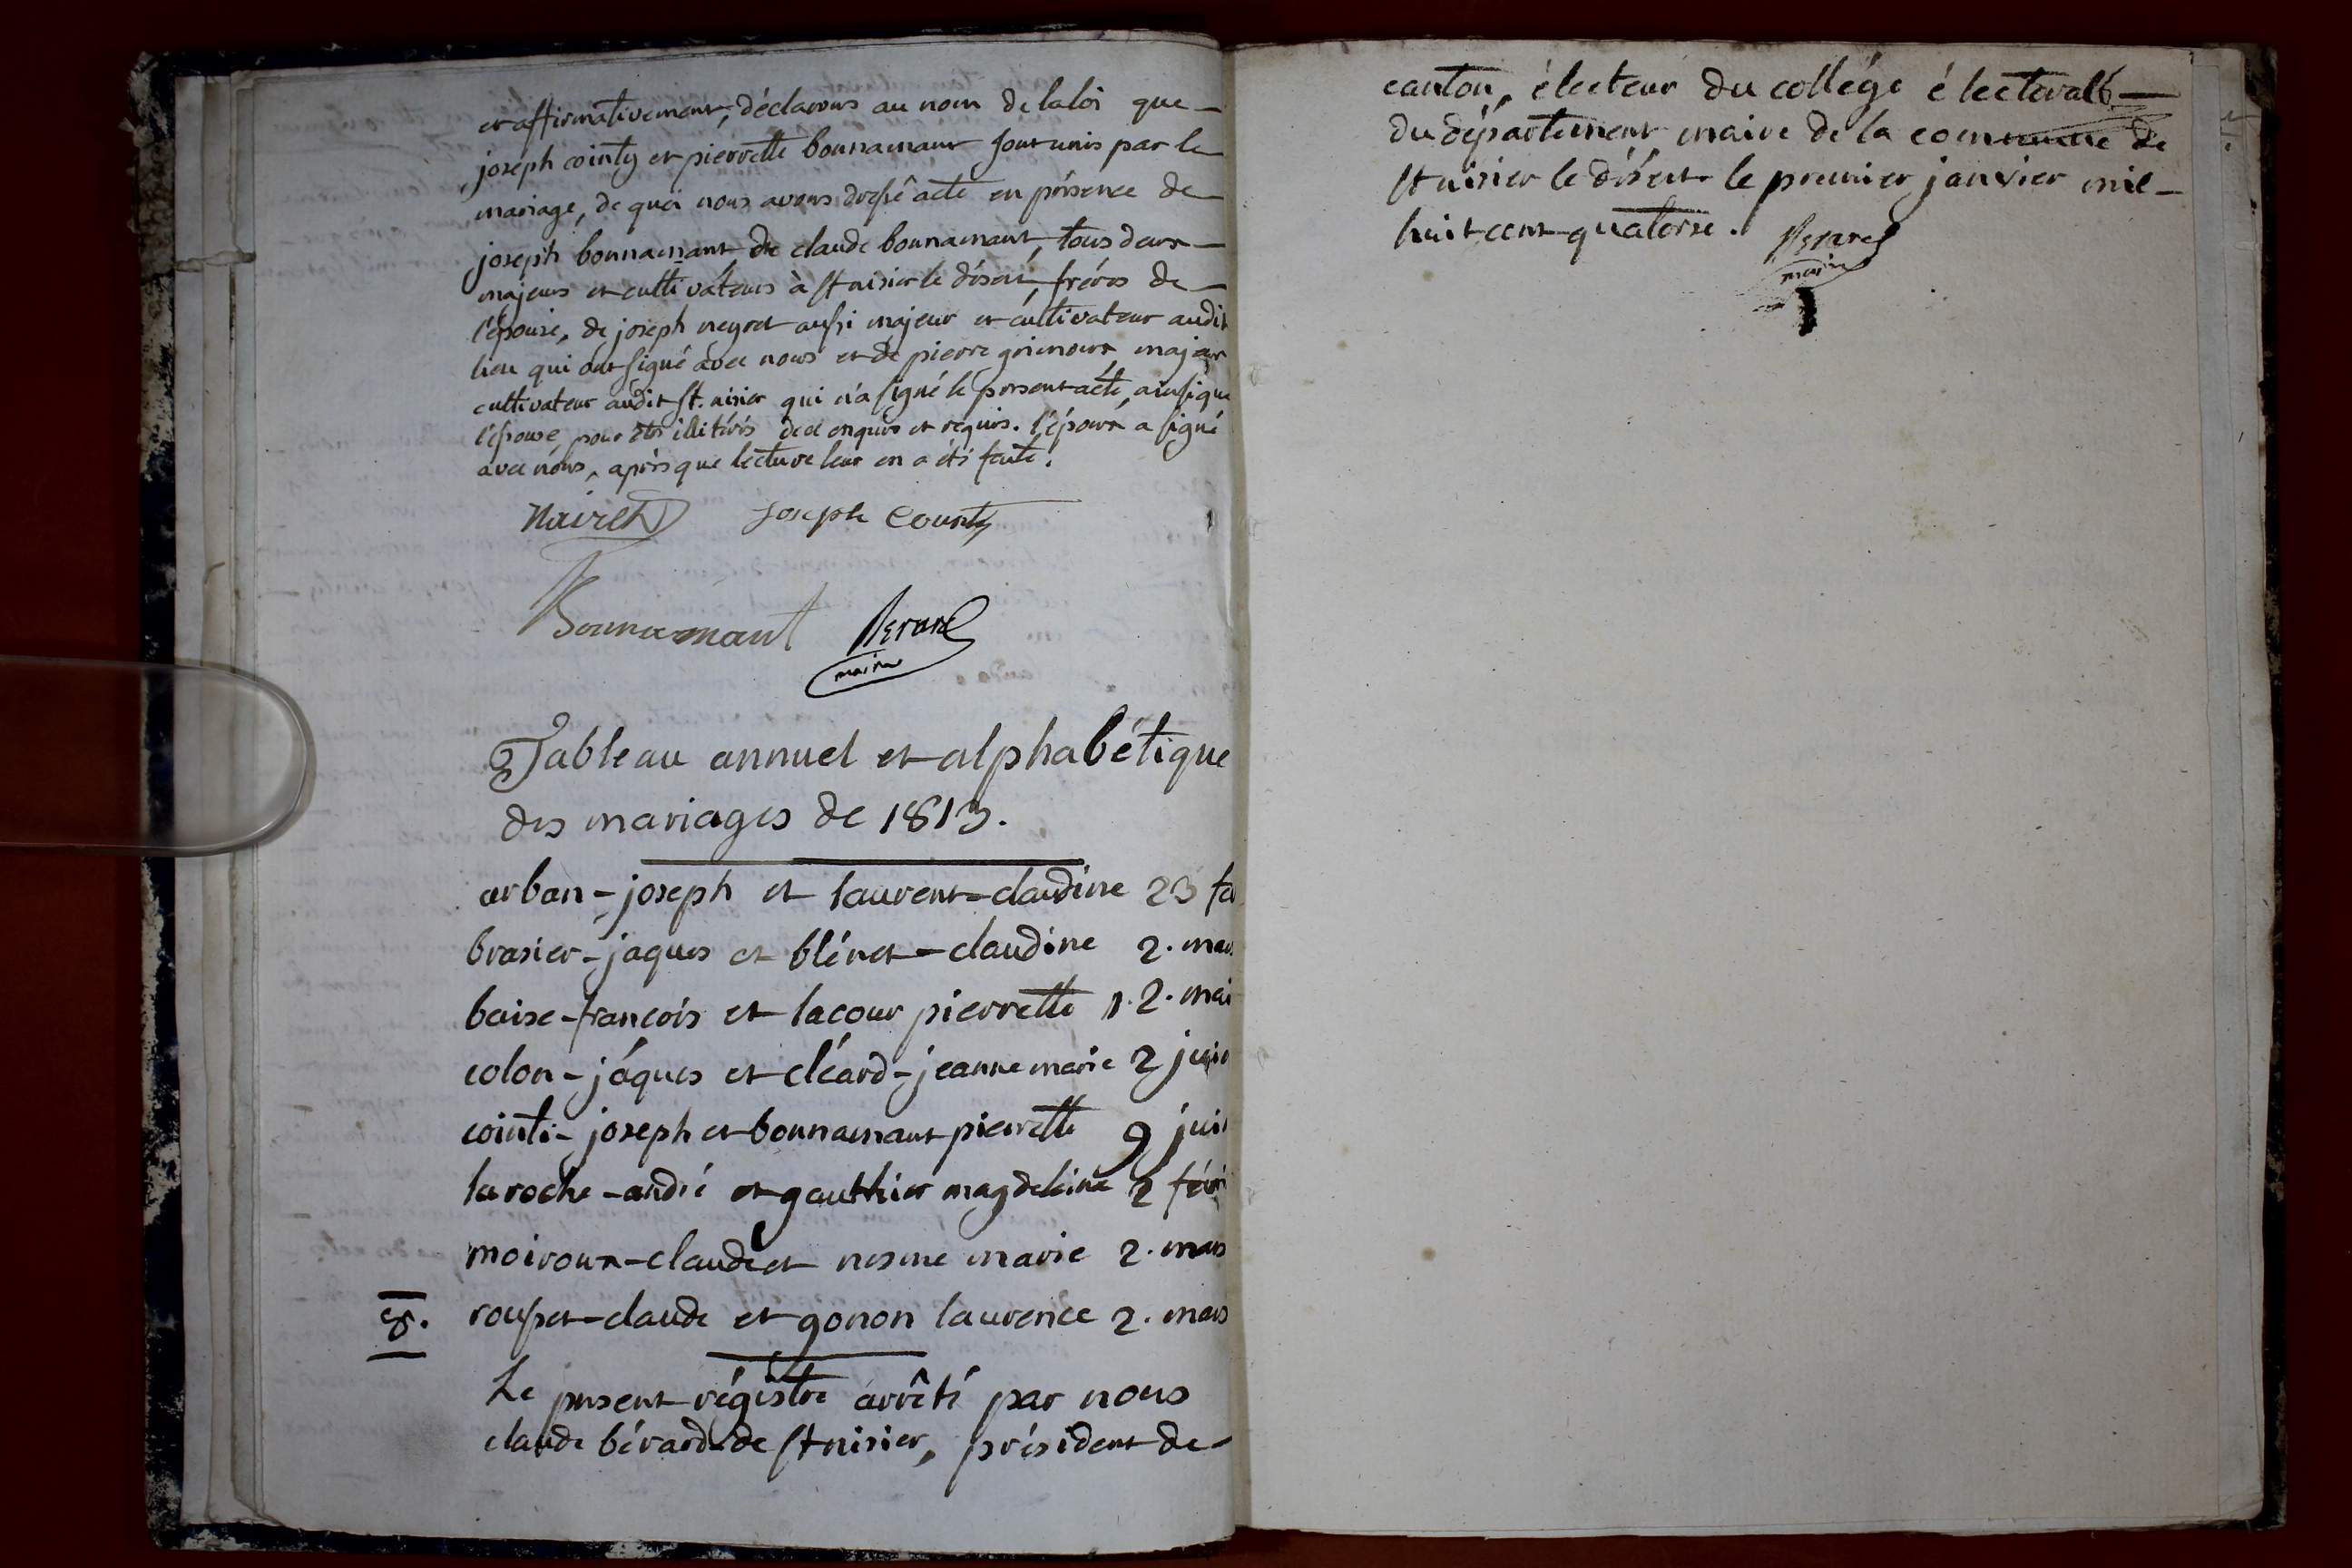 et affirmativement, déclarons au nom de la loi que
joseph cointy et pierrette bonnamant sont unis par le
mariage, de quoi nous avons dressé acte en présence de
joseph bonnamant de claude bonnamant, tous deux
majeurs et cultivateurs à st nisier le désert, fréres de
l'épouse, de joseph neyret aussi majeur et cultivateur audit
lieu qui ont signé avec nous et de pierre majeur
cultivateur audit st. nisier qui n'a signé le présent acte, ainsi que
l'épouse, pour être illitérés de ce enquis et requis. l'époux a signé
avec nous, après que lecture leur en a été faite.
Joseph County
Bonnamant Berard
maire
Tableau annuel et alphabétique
des mariages de 1813.
arban - joseph et laurent - claudine 23
brasier - jaques et blénet - claudine 2. mars
baise - francois et lacour pierrette 12. mai
colon - jáques et cléard - jeanne marie 2 juin
cointi - joseph et bonnamant pierrette 9 juin
laroche - andré et gauthier magdeleine 2 févri
moiroux - claude et nesme marie 2. mars
8. rousset - claude et gonon laurence 2. mars
Le présent régistre arrêté par nous
claude bérard de st nisier, président de
canton, électeur du collége électorale
du département maire de la commune de
st nisier le désert le premier janvier mil
huit cent quatorze. Berard
maire